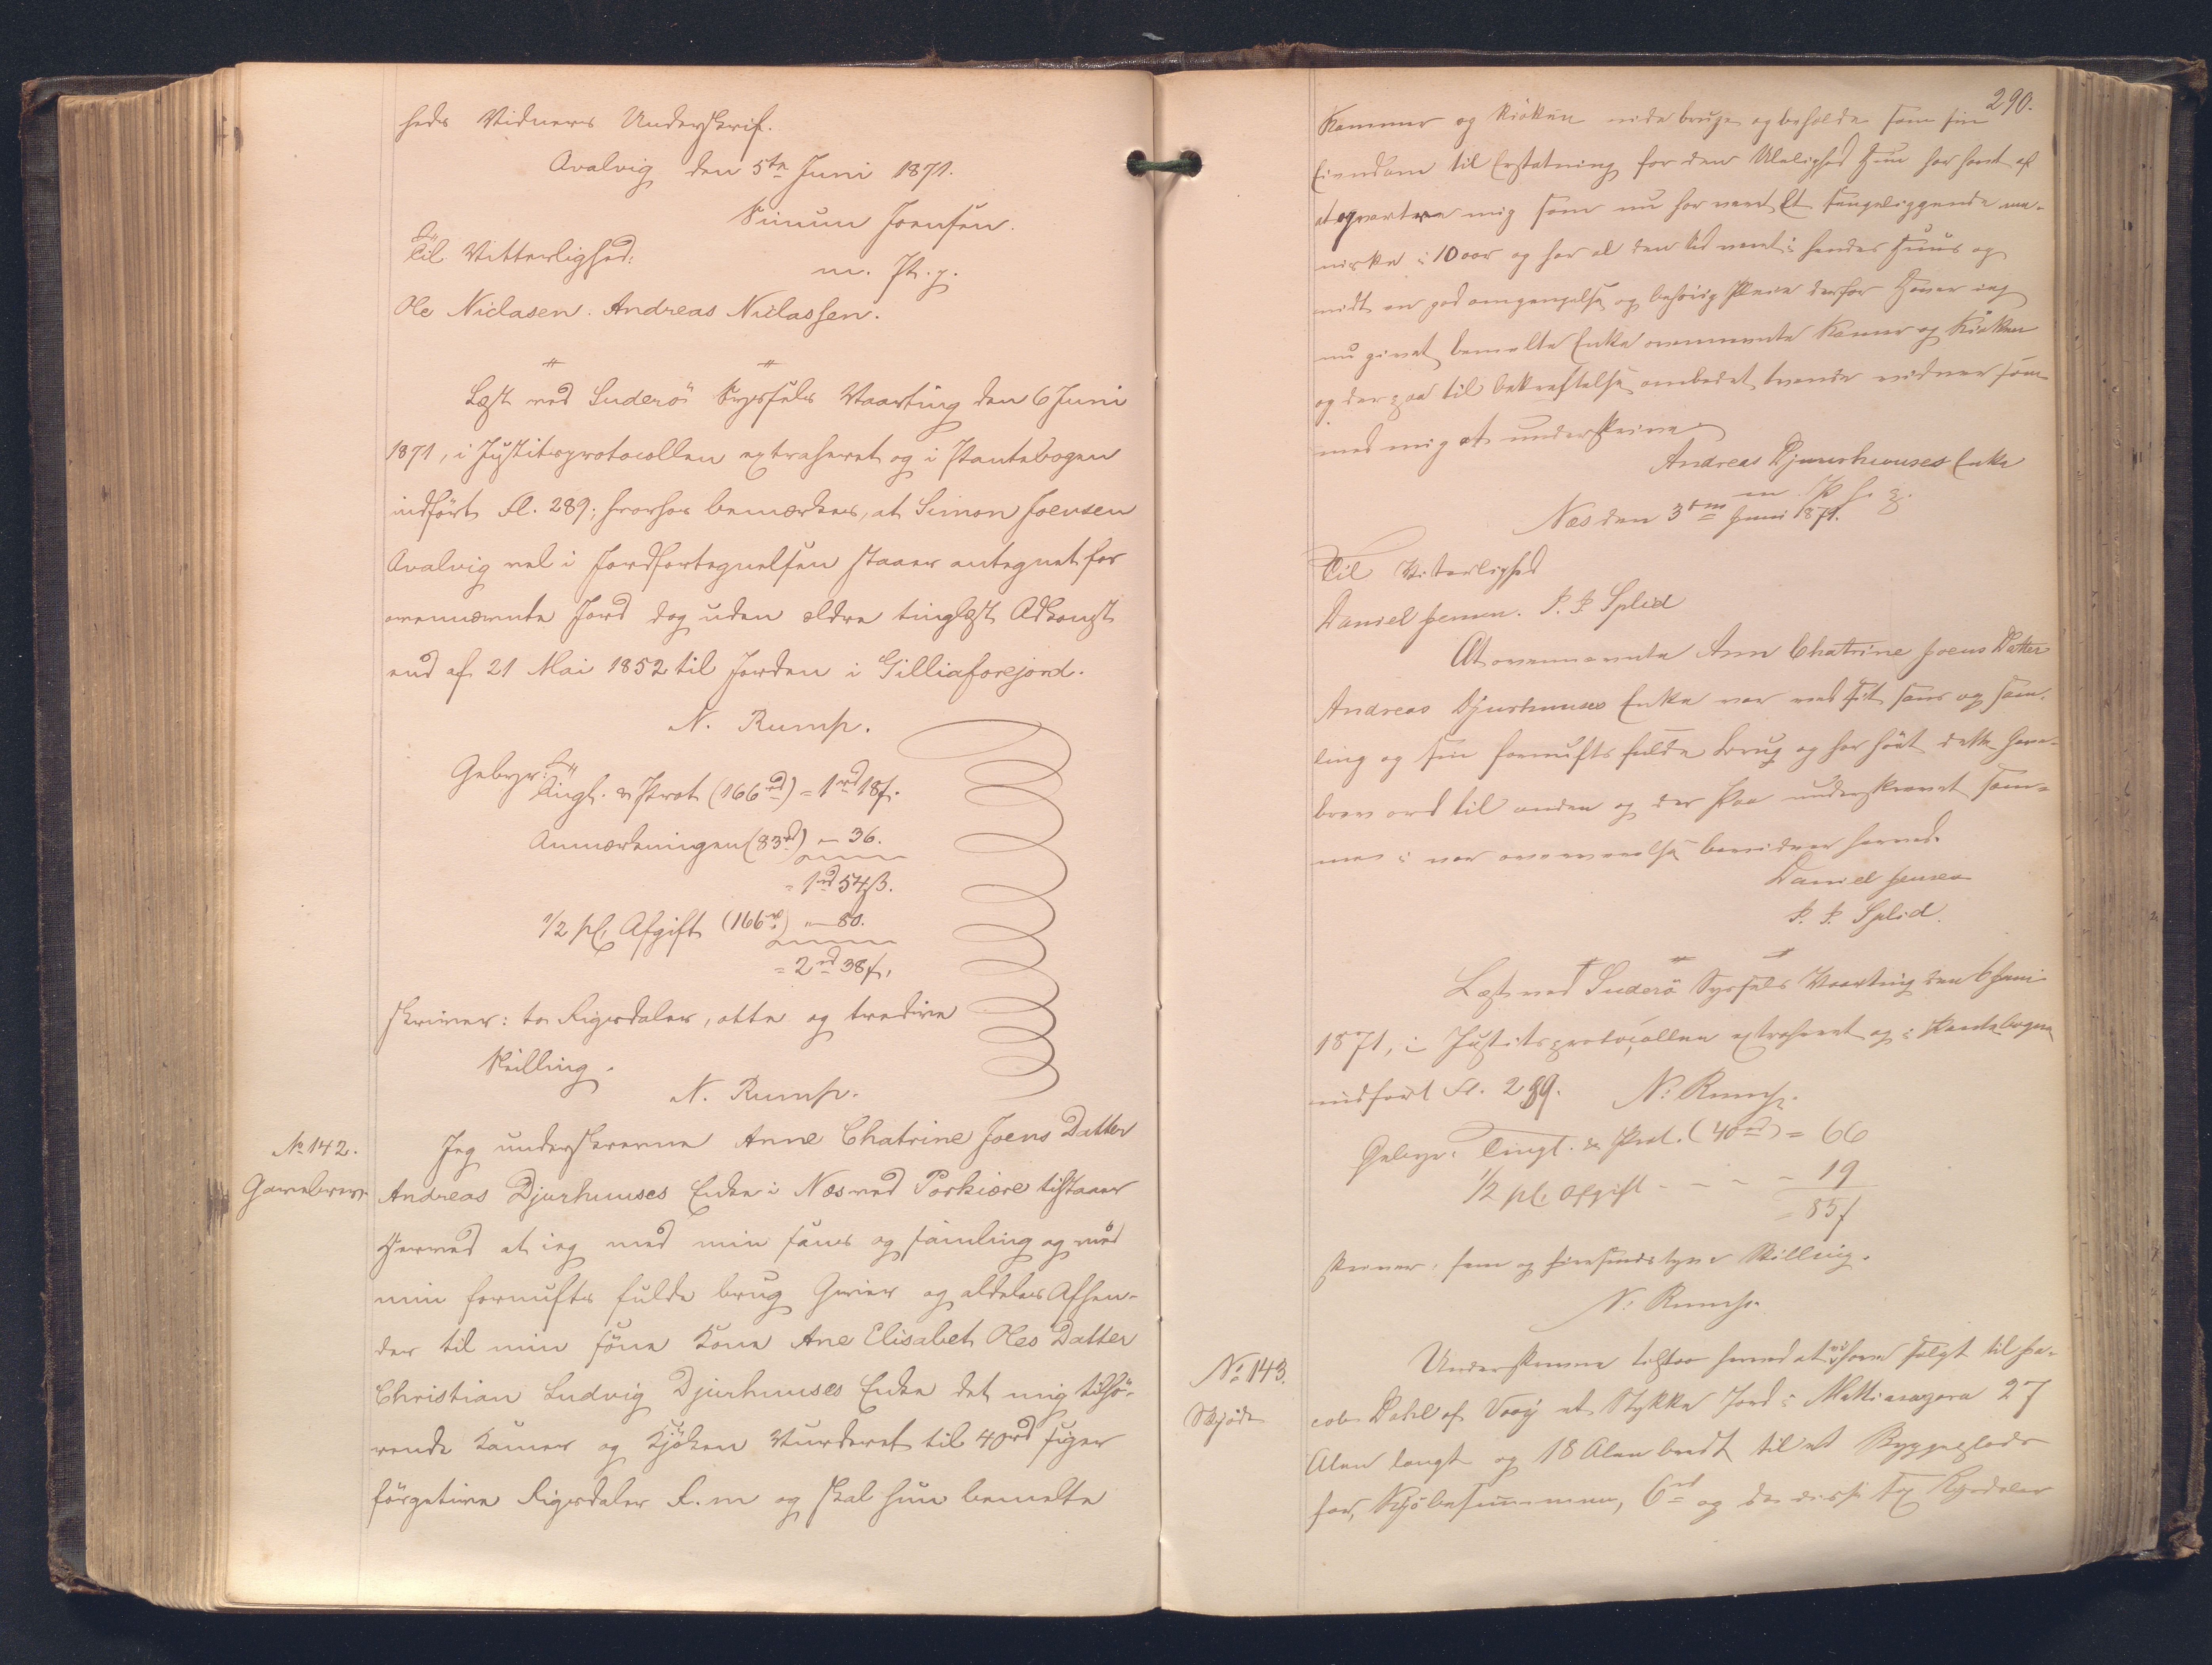 heds Vidners Underskrift.
Qvalvig den 5te Juni 1871.
Simun Joensen.
m. P. f.
Til Vitterlighed:
Ole Niclasen. Andreas Niclassen.
Læst ved Suderö Syssels Vaarting den 6 Juni
1871, i Justitsprotocollen extraheret og i Pantebogen
indfört Fl. 289; hvorhos bemærkes, at Simon Joensen
Qvalvig vel i Jordfortegnelsen staaer antegnet for
ovennævnte Jord dog uden ældre tinglæst Adkomst
end af 21 Mai 1852 til Jorden i Gilliaforejord.
N. Rump.
Gebyr: Tingl. & Prot (166rd) = 1rd 18ß.
Anmærkningen (83rd) „ - 36.
= 1rd 54ß.
1/2 pCt Afgift (166rd) „ - 80.
= 2rd 38ß,
skriver: to Rigsdaler, otte og tredive
Skilling.
N. Rump.
No 142.
Gavebrev.
Jeg underskrevne Anne Chatrine Joens Datter
Andreas Djurhuuses Enke i Næs ved Porkiere tilstaaer
Herved at ieg med min sans og samling og med
min fornufts fulde brug Giver og aldeles Afhen-
der til min söns Kone Ane Elisabet Oles Datter
Christian Ludvig Djurhuuses Enke det mig tilhö-
rende Kamer og Kjöken Vurderet til 40rd siger
förgetive Rigsdaler R.m og skal hun bemelte
290.
Kammer og Kiöken nide bruge og beholde som sin
Eiendom til Erstatning for den Ulelighed Hun har havt af
at opvartere mig som nu har veret Et sengeliggende me-
niske i 10 aar og har al den tid veret i hendes Huus og
nidt en god omgengelse og behörig Pleie derfor Haver ieg
nu givet bemelte Enke ovennevnte Kamer og Kiöken
og der paa til bekreftelse ombedet tvende vidner som
med mig at underskrive
Andreas Djuurhuuses Enke
m. P. f. g.
Næs den 3dm Juni 1871.
Til Viterlighed
Daniel Jensen. P. P. Splid
At ovennævnte Ann Chatrine Joens Datter
Andreas Djurhuuses Enke var ved sit sans og sam-
ling og sin fornufts fulde brug og har hört dette Gave-
brev ord til anden og der Paa underskrevet sam-
me i vor oververelse bevidner herved.
Daniel Jensen
P. P. Splid.
Læst ved Suderö Syssels Vaarting den 6 Juni
1871, i Justitsprotocollen extraheret og i Pantebogen
indfört Fl. 289. N. Rump.
Gebyr: Tingl. & Prot. (40rd) = 66
1/2 pCt Afgift - - - - 19
= 85ß
skriver: fem og firesindstyve Skilling.
N. Rump.
No 143.
Skjöde
Underskrevne tilstaa herved at vi have solgt til Ja-
cob Dahl af Vaag et Stykke Jord i Mattiasagera 27
Alen langt og 18 Alen bredt til et Byggeplads
for, Kjöbesummen, 6rd og da disse sex Rigsdaler